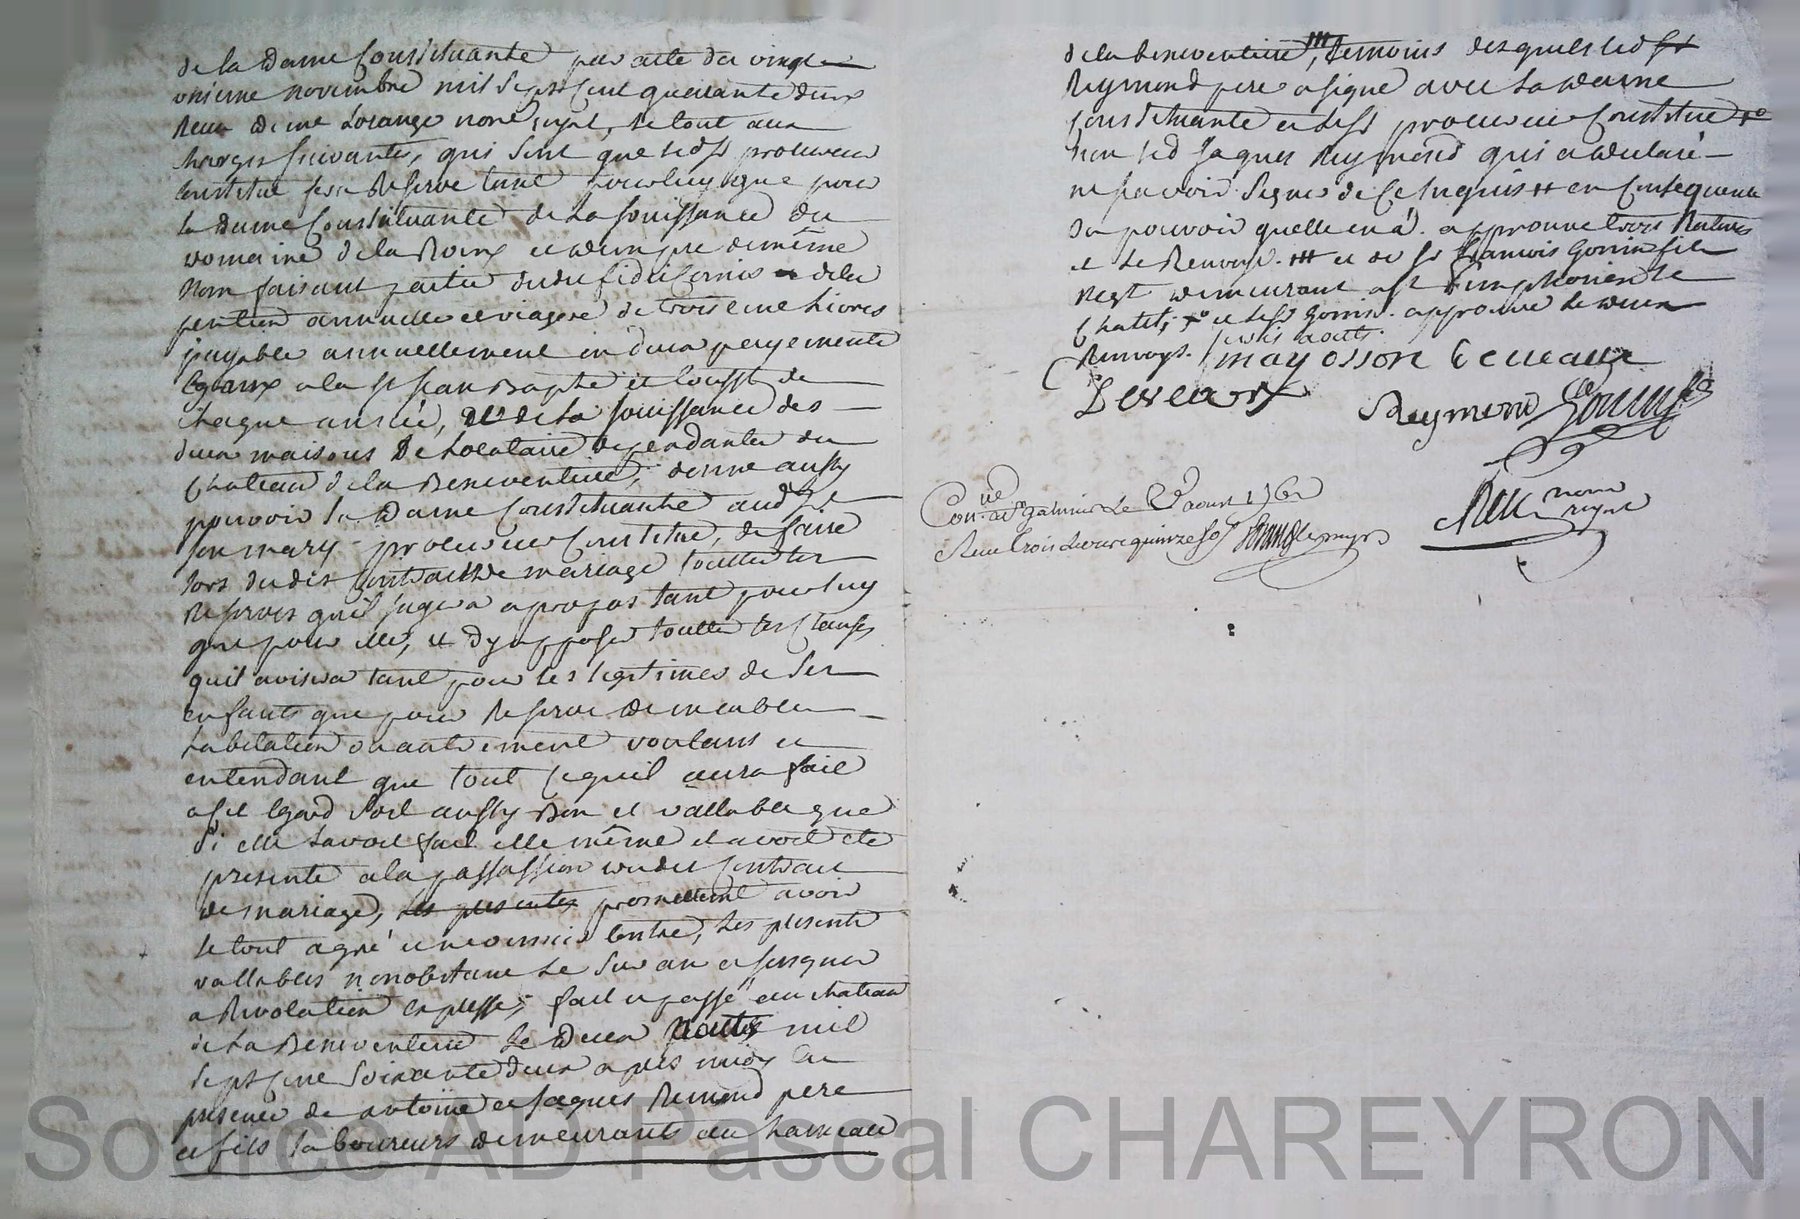 de la dame Constituante par acte du vingt
onzieme novembre mil sept Cent quarante deux
Receu De me Lorange nore royal, le tout aux
charges suivantes, qui sont que ledSr procureur
Constitué fera Reserve tant pour luy que pour
la dame Constituante de la jouissance du
domaine de la Roux et
non faisant partie dudit fideicomis de la
pention annuelle et viagere de trois cent Livres
payable annuellement en deux payements
Egaux a la st jean Baptte et toussts de
chaque année, de la jouissance des
deux maisons De Locataire dependantes du
chateau de la Beneventiere, donne aussy
pouvoir la dame Constituante audSr
son mary procureur Constitué, de faire
lors dudit Contract de mariage touttes les
Reserves qu'il jugera apropos tant pour luy
que pour elle, et d'y apposer touttes les clauses
quil avisera tant pour les legitimes de ses
enfants que pour Reserve De meubles
habitation ou autrement voulant et
entendant que tout ce quil aura fait
a cet Egard soit aussy Bon et vallable que
si elle Lavoit fait elle même et avoit eté
presente a la passassion dudit Contract
de mariage, les presentes promettant avoir
le tout agré, Les presente
vallables nonobstant le sur an et jusques
a Revocation expresse, fait et passé au chateau
de La Beneventiere Le deux aout mil
sept Cent Soixante deux apres midy En
presence de antoine et Jaques Remond pere
et fils laboureurs demeurants au hameau
de la Beneventiere, temoins desquels ledSr
Reymond pere a signé avec La dame
Constituante et ledSr procureur Constitué
non led Jaques Reymond qui a declaré
ne scavoir signer de Ce Enquis en Consequence
du pouvoir quelle en a. approuve trois Ratures
et Le Renvoy. et de Sr francois Gonin fils
negt demeurant a st simphorien Le
chatel, et ledSr Gonin. approuvé Le deux
Renvoys.
mayosson Deveaux
Deveaux
Reymond Gonin fils
Conlé a St galmier Le aoust 1762
Receu trois Livres quinze sols
nore
royal
Source AD Pascal CHAREYRON